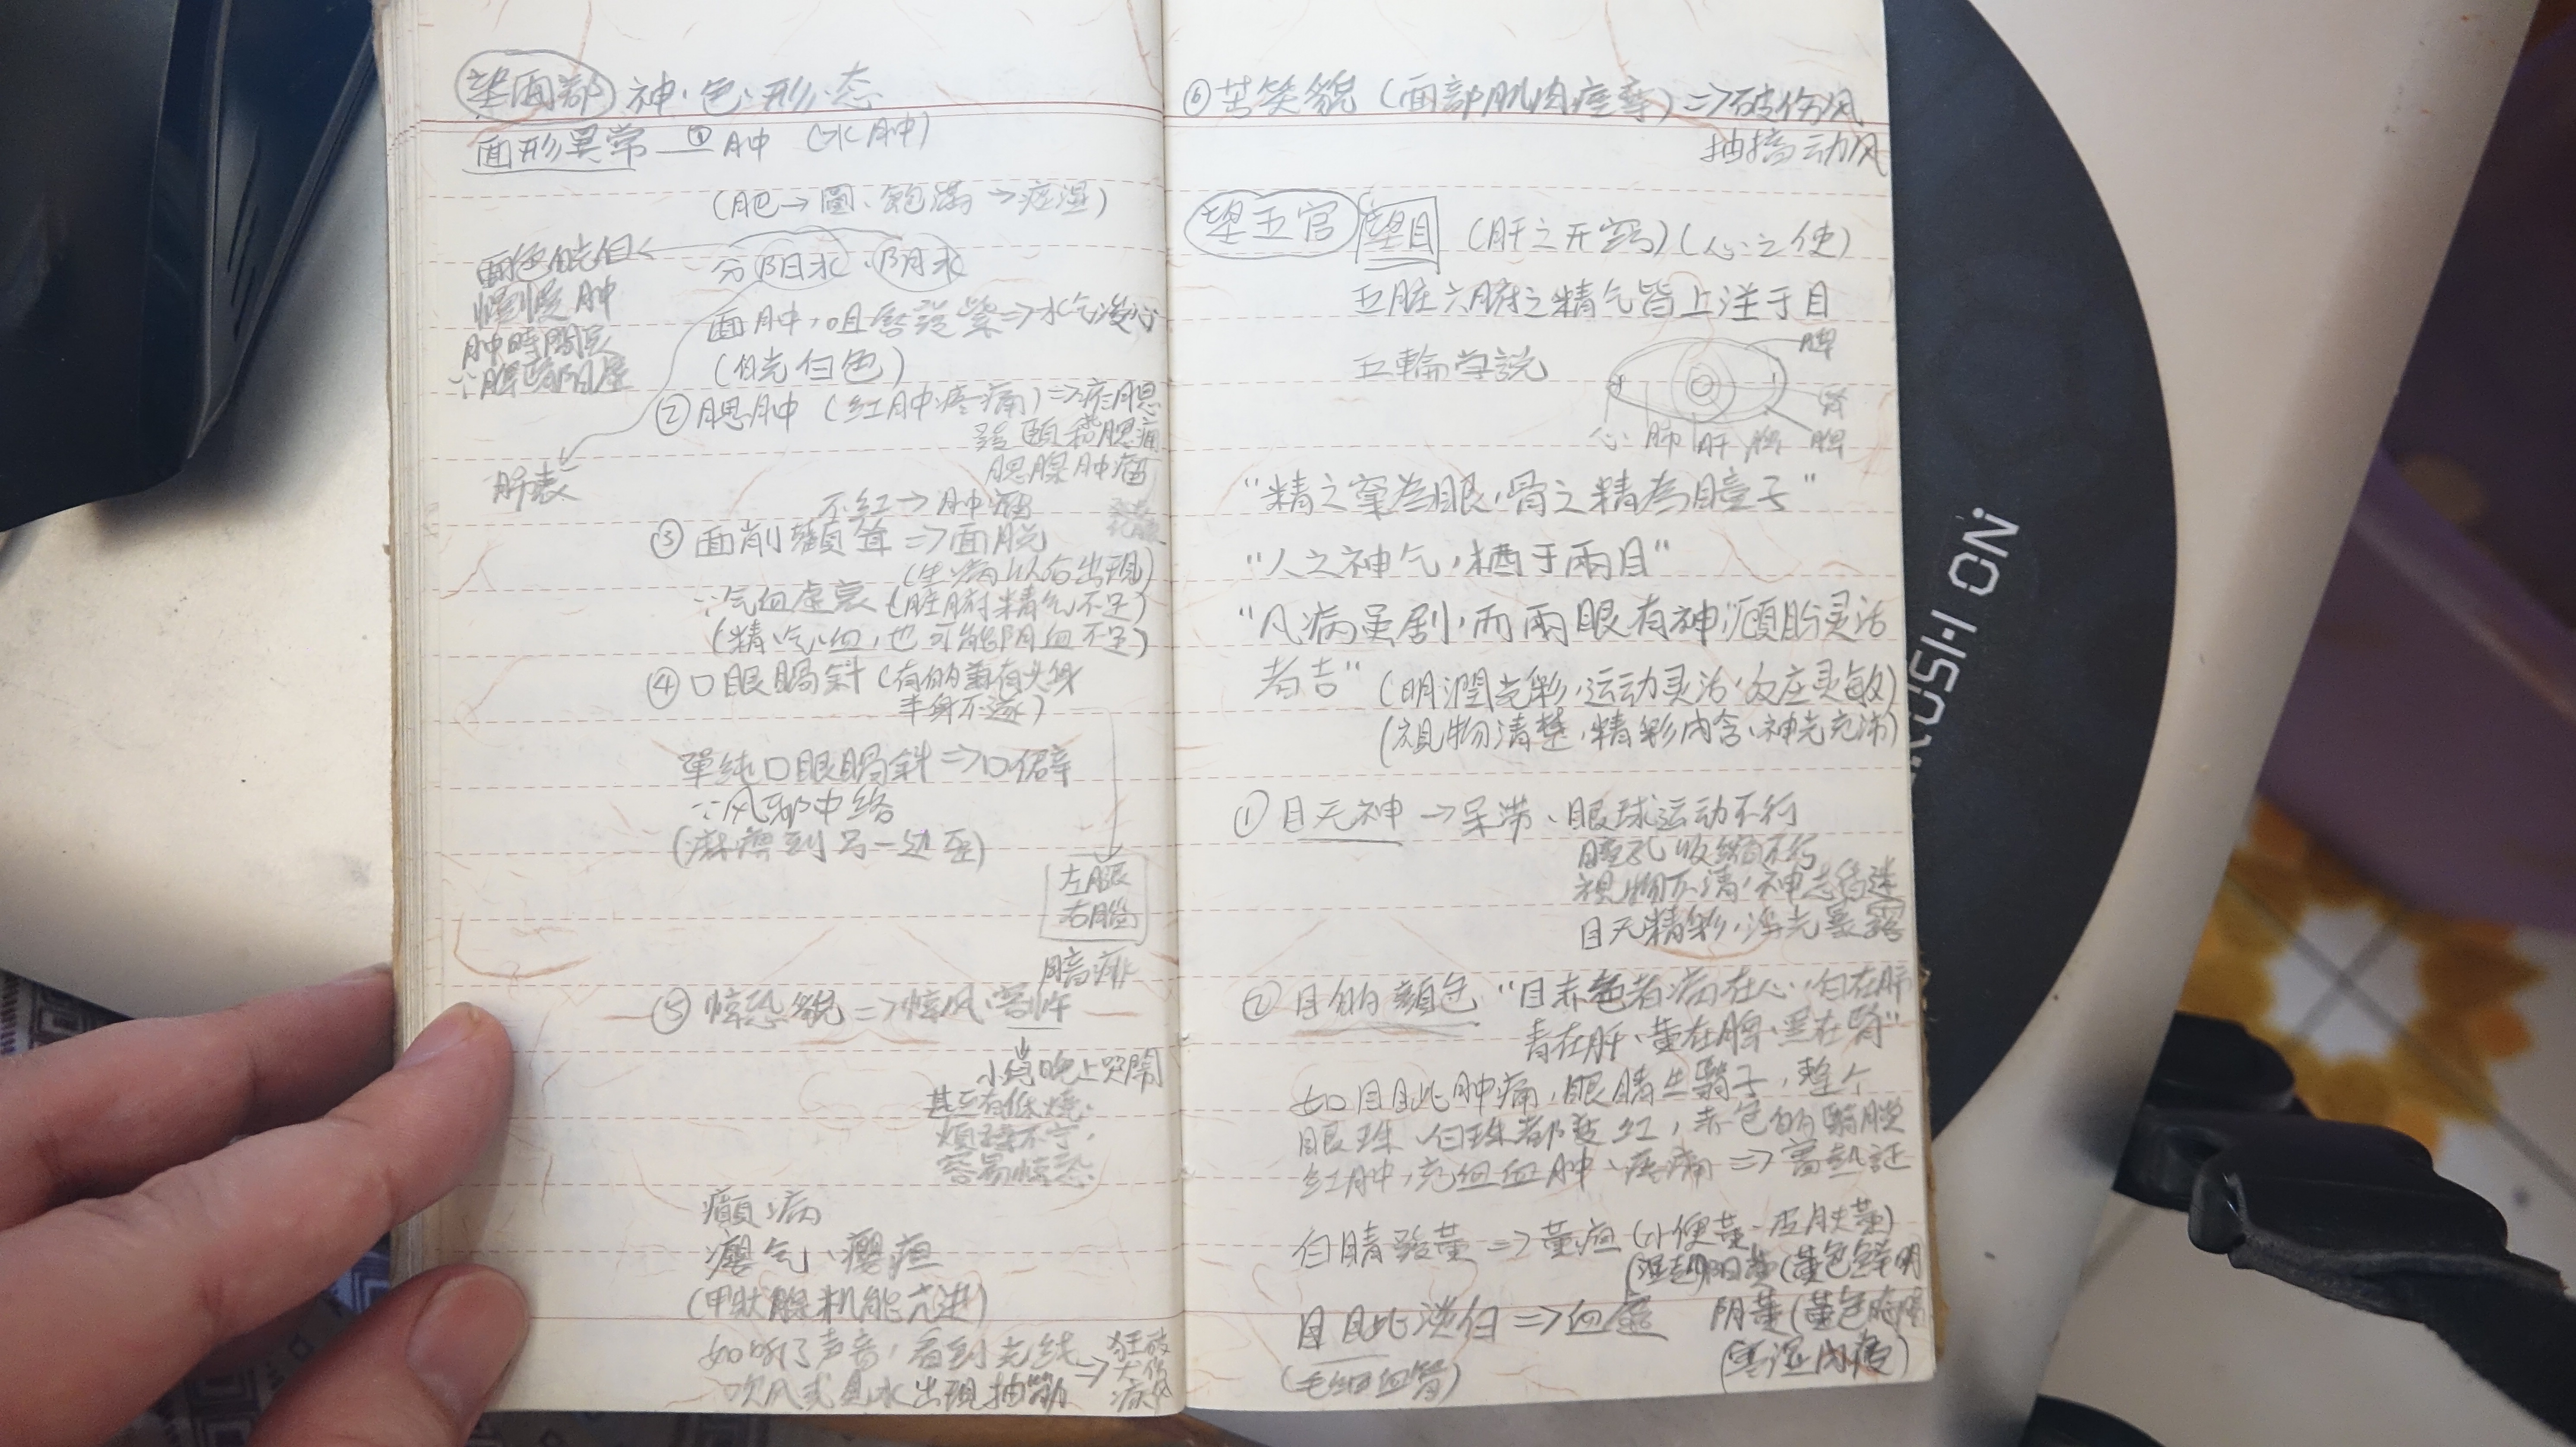 望面部 神、色、形、态
面形異常 ① 肿 (水肿)
(肥→圓、飽滿→痰湿)
分阳水、阴水
面色㿠白
慢慢肿
肿時間長
∵脾腎阳虛
面肿,咀唇發紫⇒水气凌心
(㿠白色)
② 腮肿 (红肿疼痛)⇒痄腮
發頤
腮腺肿瘤
肺表
不红→肿瘤
③ 面削顴耸⇒面脱
(生病以后出現)
∵气血虚衰 (脏腑精气不足)
(精、气、血,也可能阴血不足)
④ 口眼喎斜 (有的兼有头身
半身不遂)
單純口眼喎斜⇒口僻
∵风邪中络
(麻痹到另一边歪)
左眼
右腦
瘖痱
⑤ 惊恐貌⇒惊风、客忤
小孩晚上哭鬧
甚至有低燒
煩躁不宁,
容易惊恐
癲病
癭气、癭疽
(甲狀腺机能亢进)
如听了声音,看到光线
吹风或見水出現抽筋→
狂犬病
⑥ 苦笑貌 (面部肌肉痙攣)⇒破伤风
抽搐动风
望五官 望目 (肝之开窍)(心之使)
五脏六腑之精气皆上注于目
五輪学説
脾
腎
心 肺 肝 脾
"精之窠為眼,骨之精為瞳子"
"人之神气,栖于兩目"
"凡病虽剧,而兩眼有神,顧盼灵活
者吉" (明潤光彩,运动灵活,反应灵敏)
(視物清楚,精彩内含、神光充沛)
① 目无神→呆滞、眼球运动不行
瞳孔收縮不行
視物不清,神志昏迷
目无精彩,浮光暴露
② 目的顏色 "目赤色者病在心,白在肺
青在肝、黄在脾、黑在腎"
如目眦肿痛,眼睛生翳子,整个
眼珠、白珠都变红,赤色的翳膜
红肿,充血血肿、疼痛⇒实熱証
白睛發黄⇒黄疸 (小便黄、皮肤黄)
(湿熱)阳黄(黄色鮮明
目眦淡白⇒血虛 阴黄(黄色晦暗
(毛細血管) (寒湿内
PUSH ON